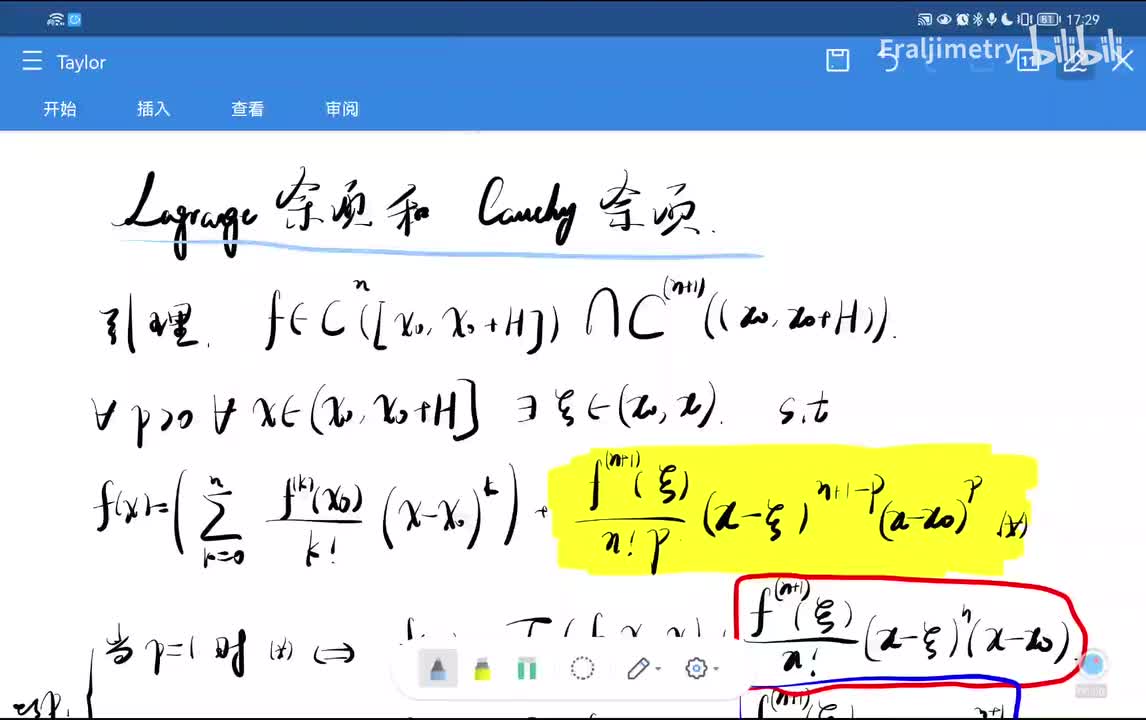 81 17:29
Taylor
Eraljimetry bilibili
11
开始 插入 查看 审阅
Lagrange 余项和 Cauchy 余项.
引理. f∈C^n([x₀, x₀+H]) ∩ C^(n+1)((x₀, x₀+H)).
∀ p>0 ∀ x∈(x₀, x₀+H] ∃ ξ∈(x₀, x). s.t
f(x)=(∑_{k=0}^{n} f^(k)(x₀)/k! (x-x₀)^k) + f^(n+1)(ξ)/(n! p) (x-ξ)^{n+1-p}(x-x₀)^p (*)
当 p=1 时 (*) ⇔ f^(n+1)(ξ)/n! (x-ξ)^n(x-x₀)
esp.